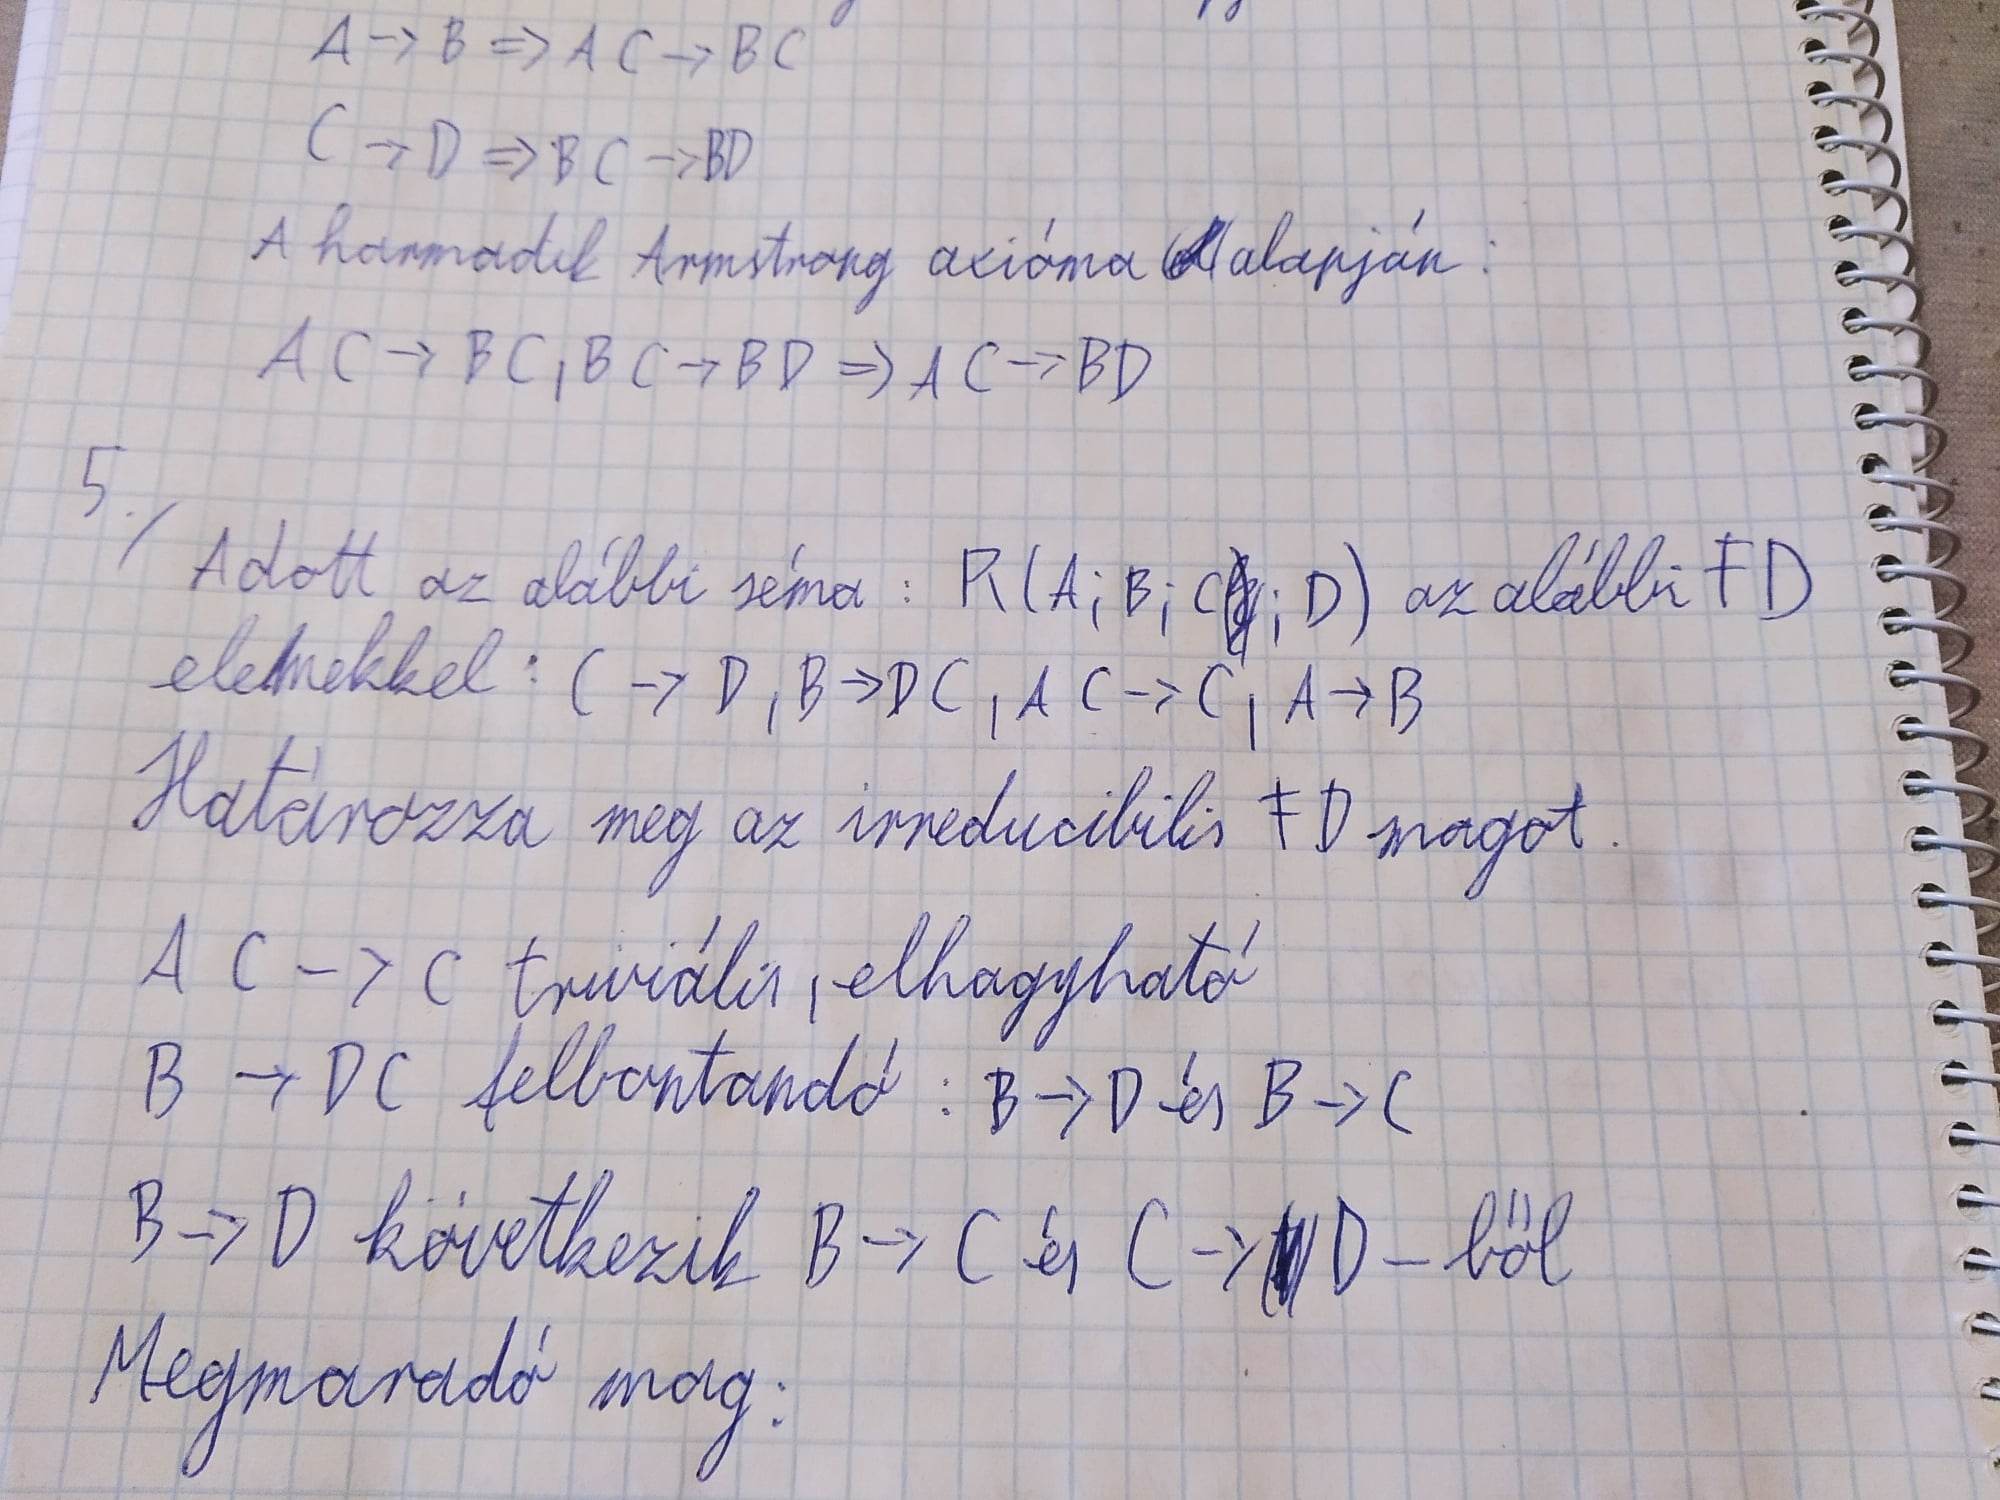 A → B ⇒ A C → B C
C → D ⇒ B C → BD
A harmadik Armstrong axióma alapján:
A C → B C, B C → B D ⇒ A C → BD
5./
Adott az alábbi séma: R(A; B; C; D) az alábbi FD
elemekkel: C → D, B → D C, A C → C, A → B
Határozza meg az irreducibilis FD magot.
A C → C triviális, elhagyható
B → D C felbontandó: B → D és B → C
B → D következik B → C és C → D-ből
Megmaradó mag: